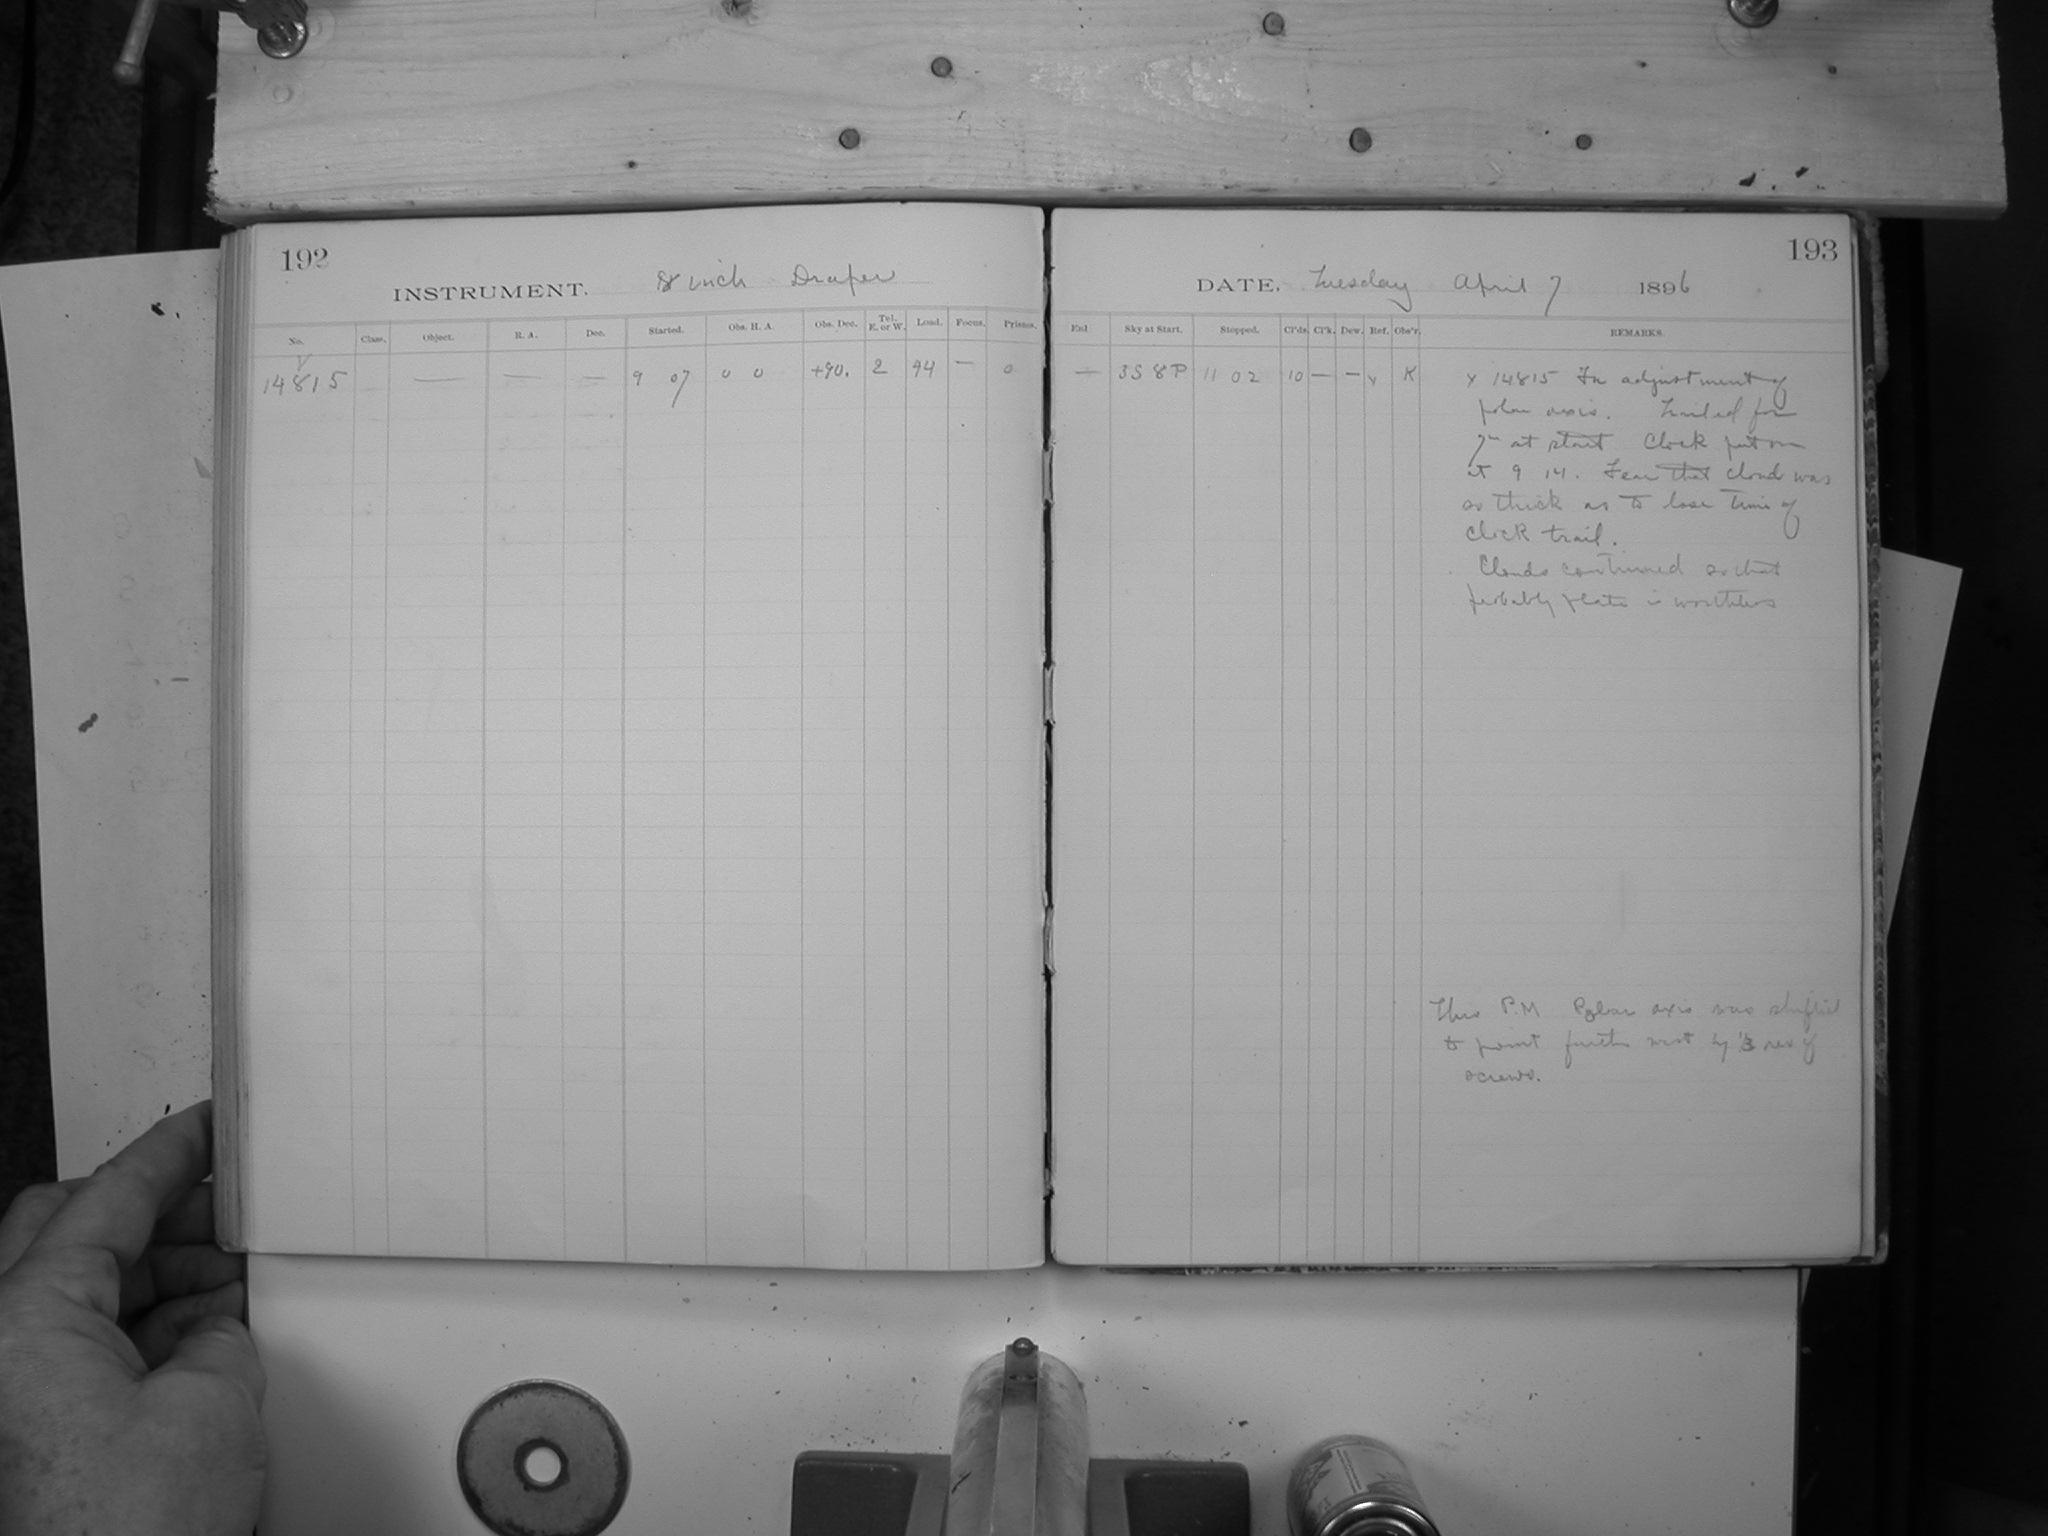 192
INSTRUMENT. 8 inch Draper
No. Class. Object. R. A. Dec. Started. Obs. H. A. Obs. Dec. Tel. E. or W. Load. Focus. Prisms.
14815 — — — 9 07 0 0 +90. 2 94 — 0
193
DATE. Tuesday April 7 1896
End Sky at Start. Stopped. Cl'ds. Cl'k. Dew. Ref. Obs'r. REMARKS.
— 3S 8P 11 02 10 — — x K
x 14815 For adjustment of
polar axis. Trailed for
7m at start Clock put on
at 9 14. Fear that cloud was
so thick as to lose time of
clock trail.
Clouds continued so that
probably plate is worthless
This P.M Polar axis was shifted
to point further west by rev of
screws.